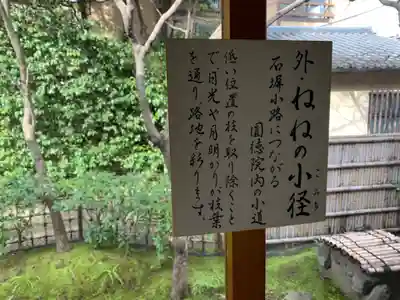 外・ねねの小径
こみち
石塀小路につながる
圓徳院内の小道
低い位置の枝を取り除くこと
で日光や月明かりが枝葉
を通り路地を彩ります。